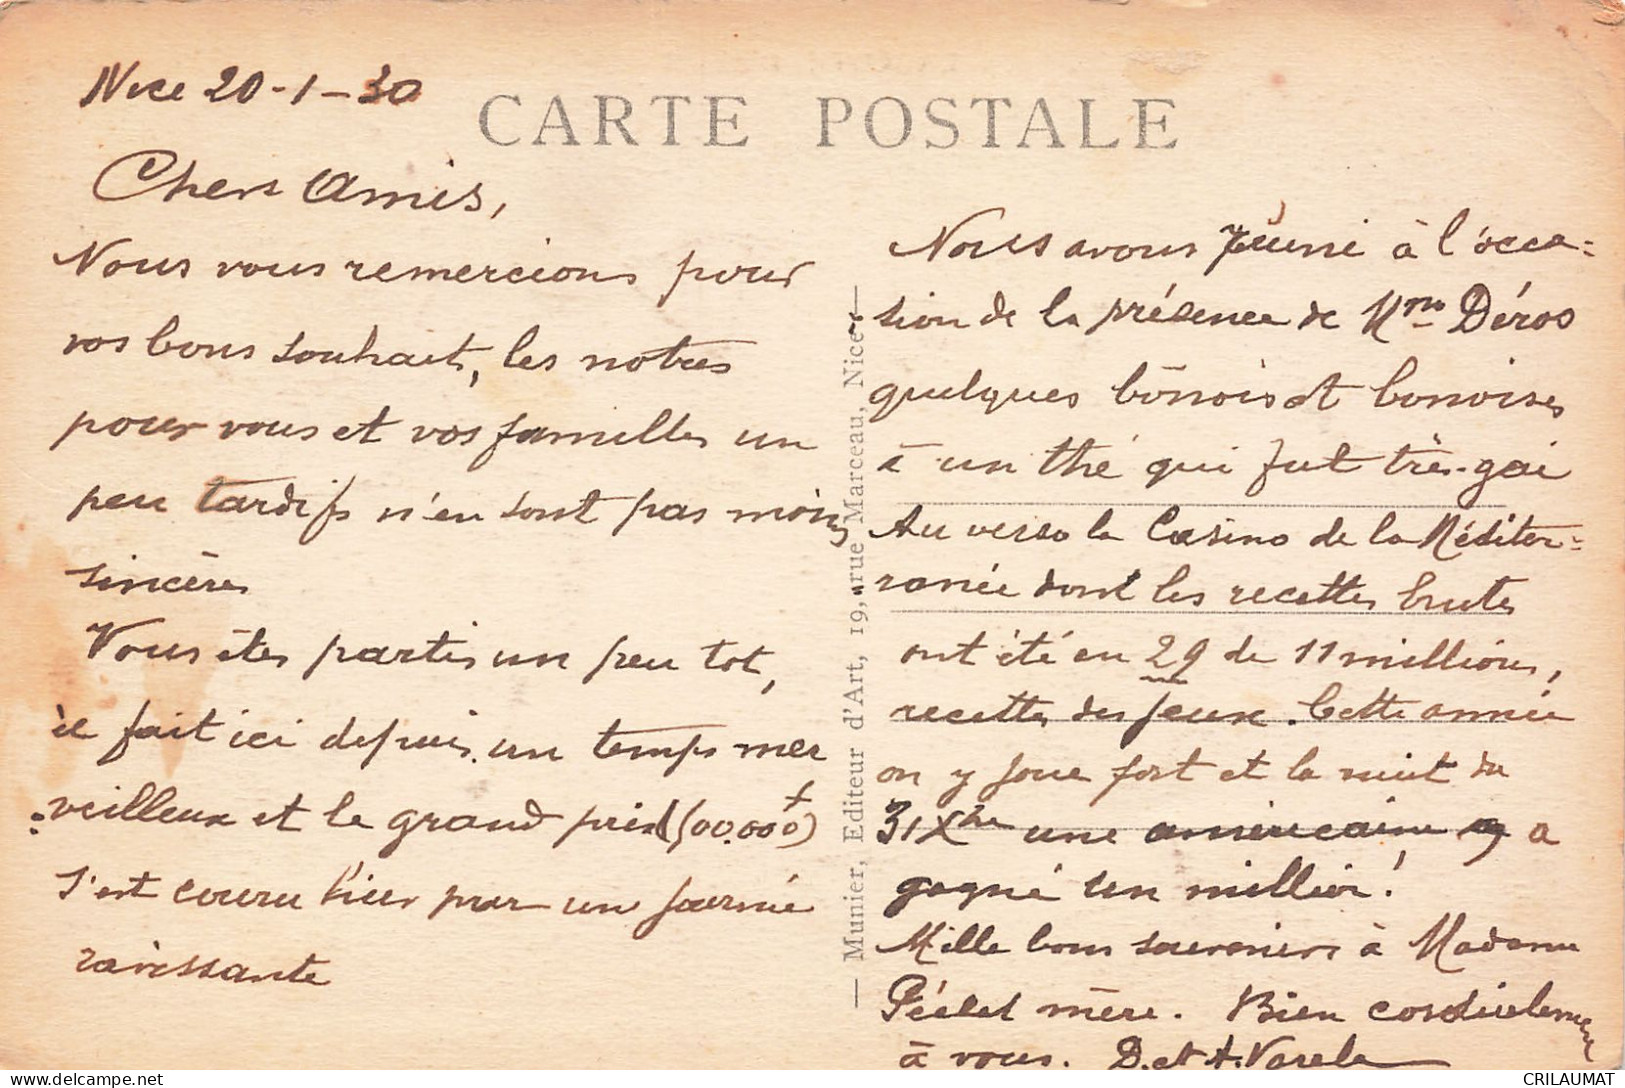 Nice 20-1-30
CARTE POSTALE
Chers Amis,
Nous vous remercions pour
vos bons souhaits, les notres
pour vous et vos familles un
peu tardifs n'en sont pas moins
sincères
Vous êtes partis un peu tot,
il fait ici depuis un temps mer
veilleux et le grand prix (500.000)
s'est couru hier par un journée
ravissante
— Munier, Editeur d'Art, 19, rue Marceau, Nice —
Nous avons réuni à l'occa-
sion de la présence de Mme Déros
quelques bônois et bonoises
à un thé qui fut très-gai
Au verso le Casino de la Méditer-
ranée dont les recettes brutes
ont été en 29 de 11 millions,
recettes des jeux. Cette année
on y joue fort et la nuit du
31 Xbre une américaine y a
gagné un million!
Mille bons souvenirs à Madame
mère. Bien cordialement
à vous. D. et A. Varela
CRILAUMAT